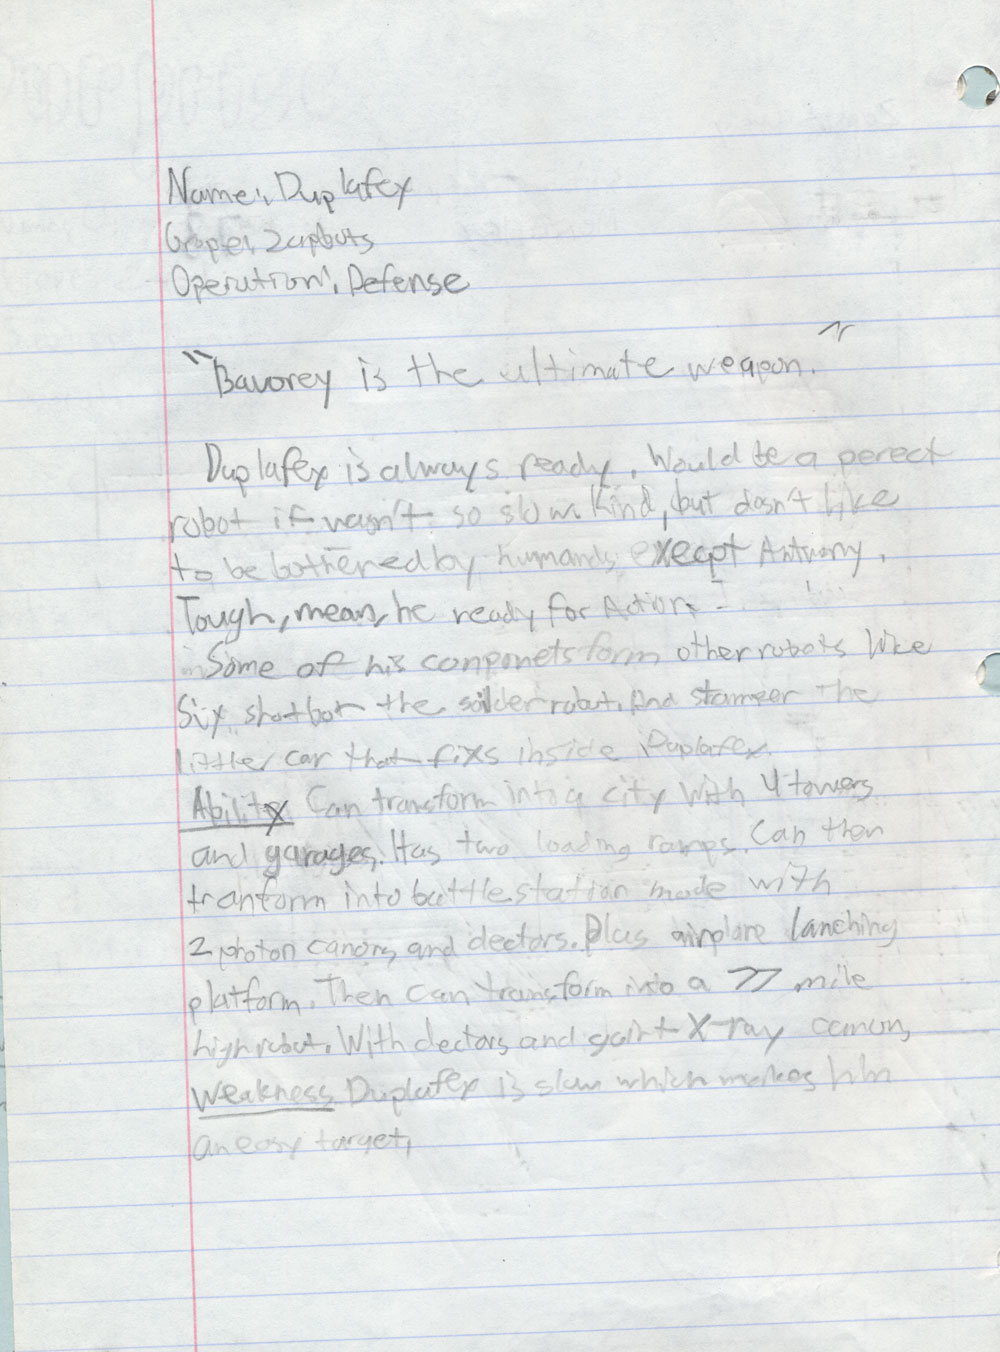 Name: Duplafex
Grope: Zapbots
Operation: Defense
"Bavorey is the ultimate weapon."
Duplafex is always ready. Would be a perect
robot if wasn't so slow. Kind, but dosn't like
to be bothered by humans execpt Antwony.
Tough, mean, he ready for Action.
Some of his componets form other robots like
Six shotbot the solder robot. And stampeer the
litter car that fixs inside Duplafex.
Ability Can transform into a city with 4 towers
and garages. Has two loading ramps. Can then
tranform into battlestation mode with
2 photon canons, and dectors. Plus airplane lanching
platform. Then can transform into a 77 mile
high robot. With dectors and gaint X-ray canon,
Weakness Duplafex is slow which makes him
an easy target,